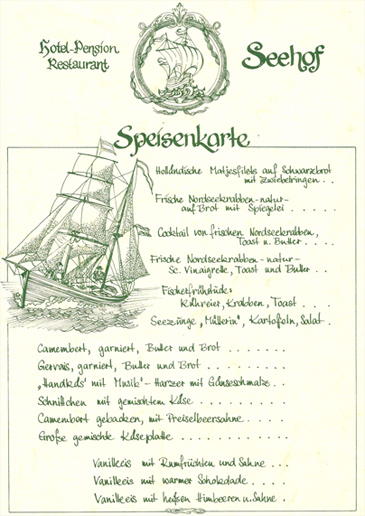 Hotel-Pension
Restaurant
Seehof
Speisenkarte
Holländische Matjesfilets auf Schwarzbrot
mit Zwiebelringen . .
Frische Nordseekrabben -natur-
auf Brot mit Spiegelei . . . . . .
Cocktail von frischen Nordseekrabben,
Toast u. Butter . . .
Frische Nordseekrabben -natur-
Sc. Vinaigrette, Toast und Butter . .
Fischerfrühstück:
Rühreier, Krabben, Toast . . . .
Seezunge „Müllerin", Kartofeln, Salat .
Camembert, garniert, Butter und Brot . . . . . . .
Gervais, garniert, Butter und Brot . . . . . . . .
„Handkäs' mit Musik" - Harzer mit Gänseschmalz . .
Schnittchen mit gemischtem Käse . . . . . . . . .
Camembert gebacken, mit Preiselbeersahne . . . .
Große gemischte Käseplatte . . . . . . . . . .
Vanilleeis mit Rumfrüchten und Sahne . . .
Vanilleeis mit warmer Schokolade . . . .
Vanilleeis mit heißen Himbeeren u. Sahne .